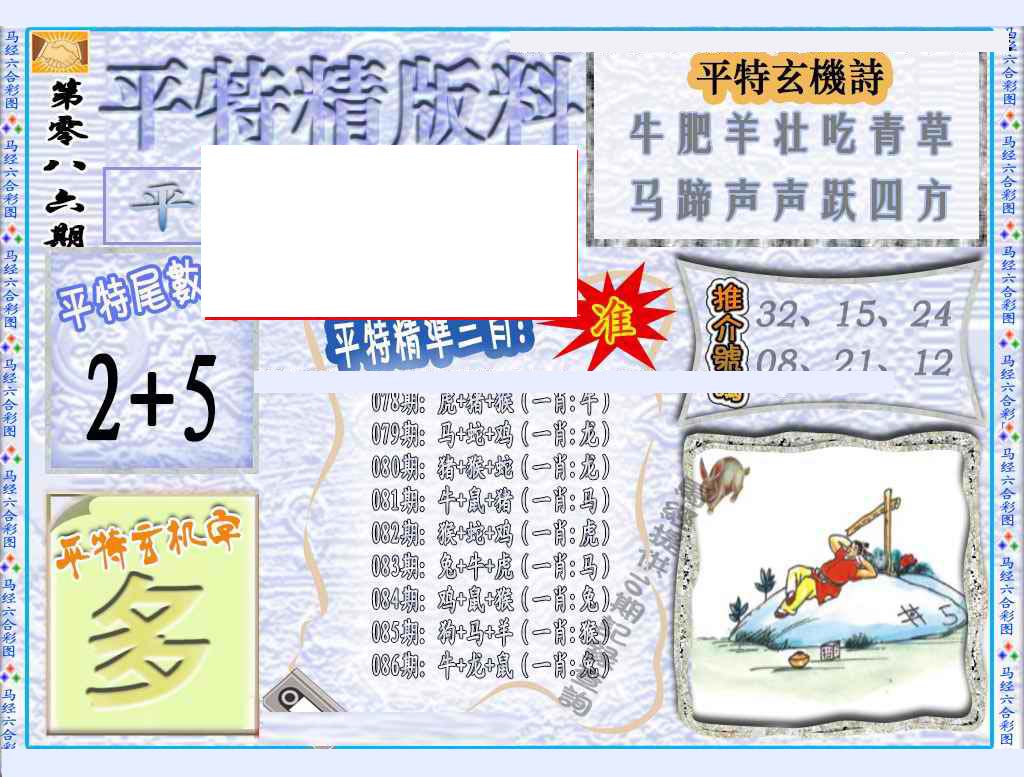 第零八六期
平特精版料
平
平特玄機詩
牛肥羊壮吃青草
马蹄声声跃四方
平特尾數
2+5
平特精準三肖!
准
推介號碼
32、15、24
08、21、12
078期: 虎+猪+猴(一肖:牛)
079期: 马+蛇+鸡(一肖:龙)
080期: 猪+猴+蛇(一肖:龙)
081期: 牛+鼠+猪(一肖:马)
082期: 猴+蛇+鸡(一肖:虎)
083期: 兔+牛+虎(一肖:马)
084期: 鸡+鼠+猴(一肖:兔)
085期: 狗+马+羊(一肖:猴)
086期: 牛+龙+鼠(一肖:兔)
平特玄机字
多
马经六合彩图 马经六合彩图 马经六合彩图 马经六合彩图 马经六合彩图 马经六合彩图 马经六合彩
马经六合彩图 马经六合彩图 马经六合彩图 马经六合彩图 马经六合彩图 马经六合彩图